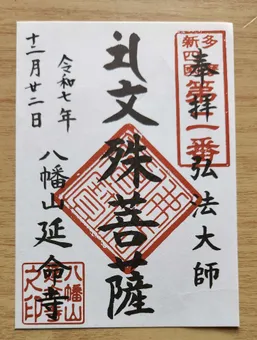 多摩
新四國
第二番
奉拝 弘法大師
文殊菩薩
令和七年
十二月廿二日
八幡山 延命寺
八幡山
之印